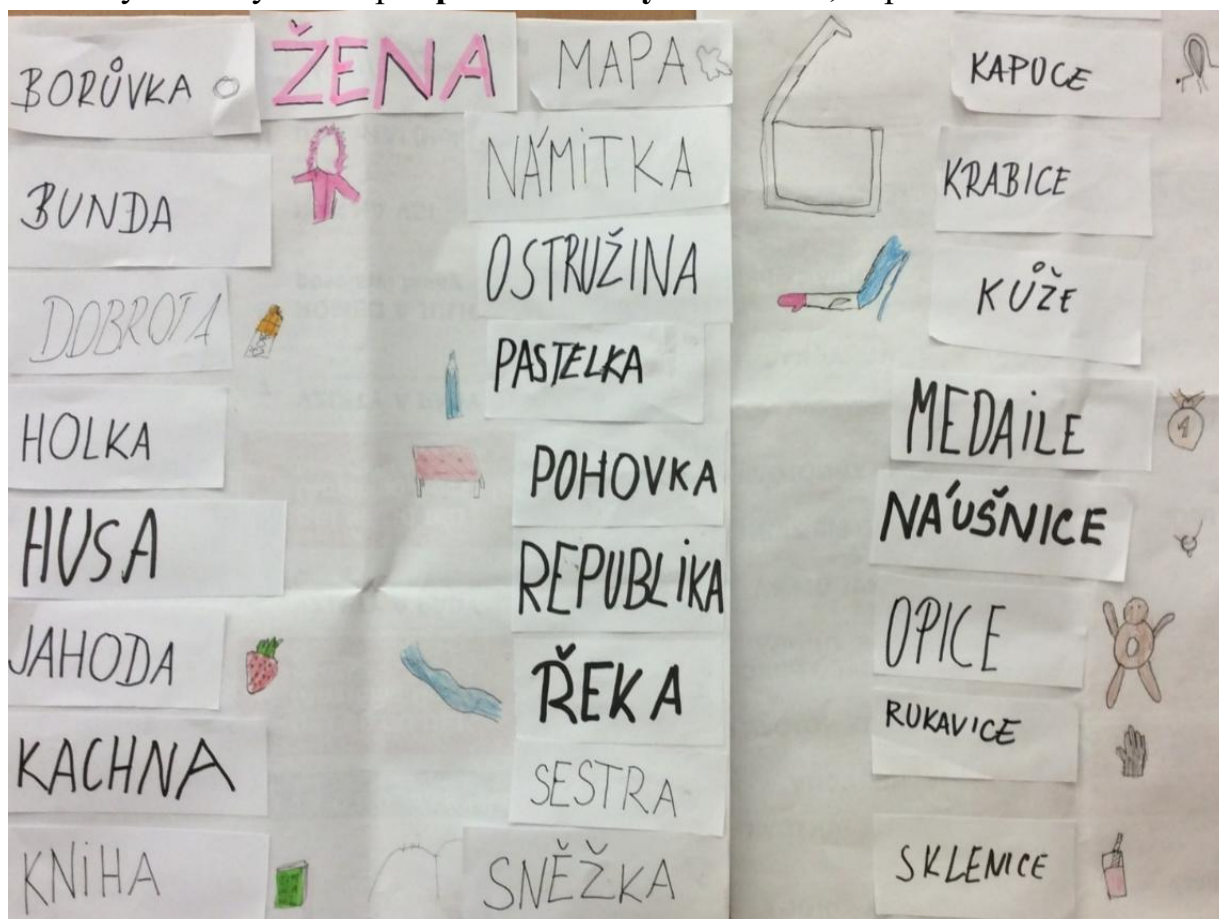 BORŮVKA
BUNDA
DOBROTA
HOLKA
HUSA
JAHODA
KACHNA
KNIHA
ŽENA
MAPA
NÁMITKA
OSTRUŽINA
PASTELKA
POHOVKA
REPUBLIKA
ŘEKA
SESTRA
SNĚŽKA
KAPUCE
KRABICE
KŮŽE
MEDAILE
1
NÁUŠNICE
OPICE
RUKAVICE
SKLENICE